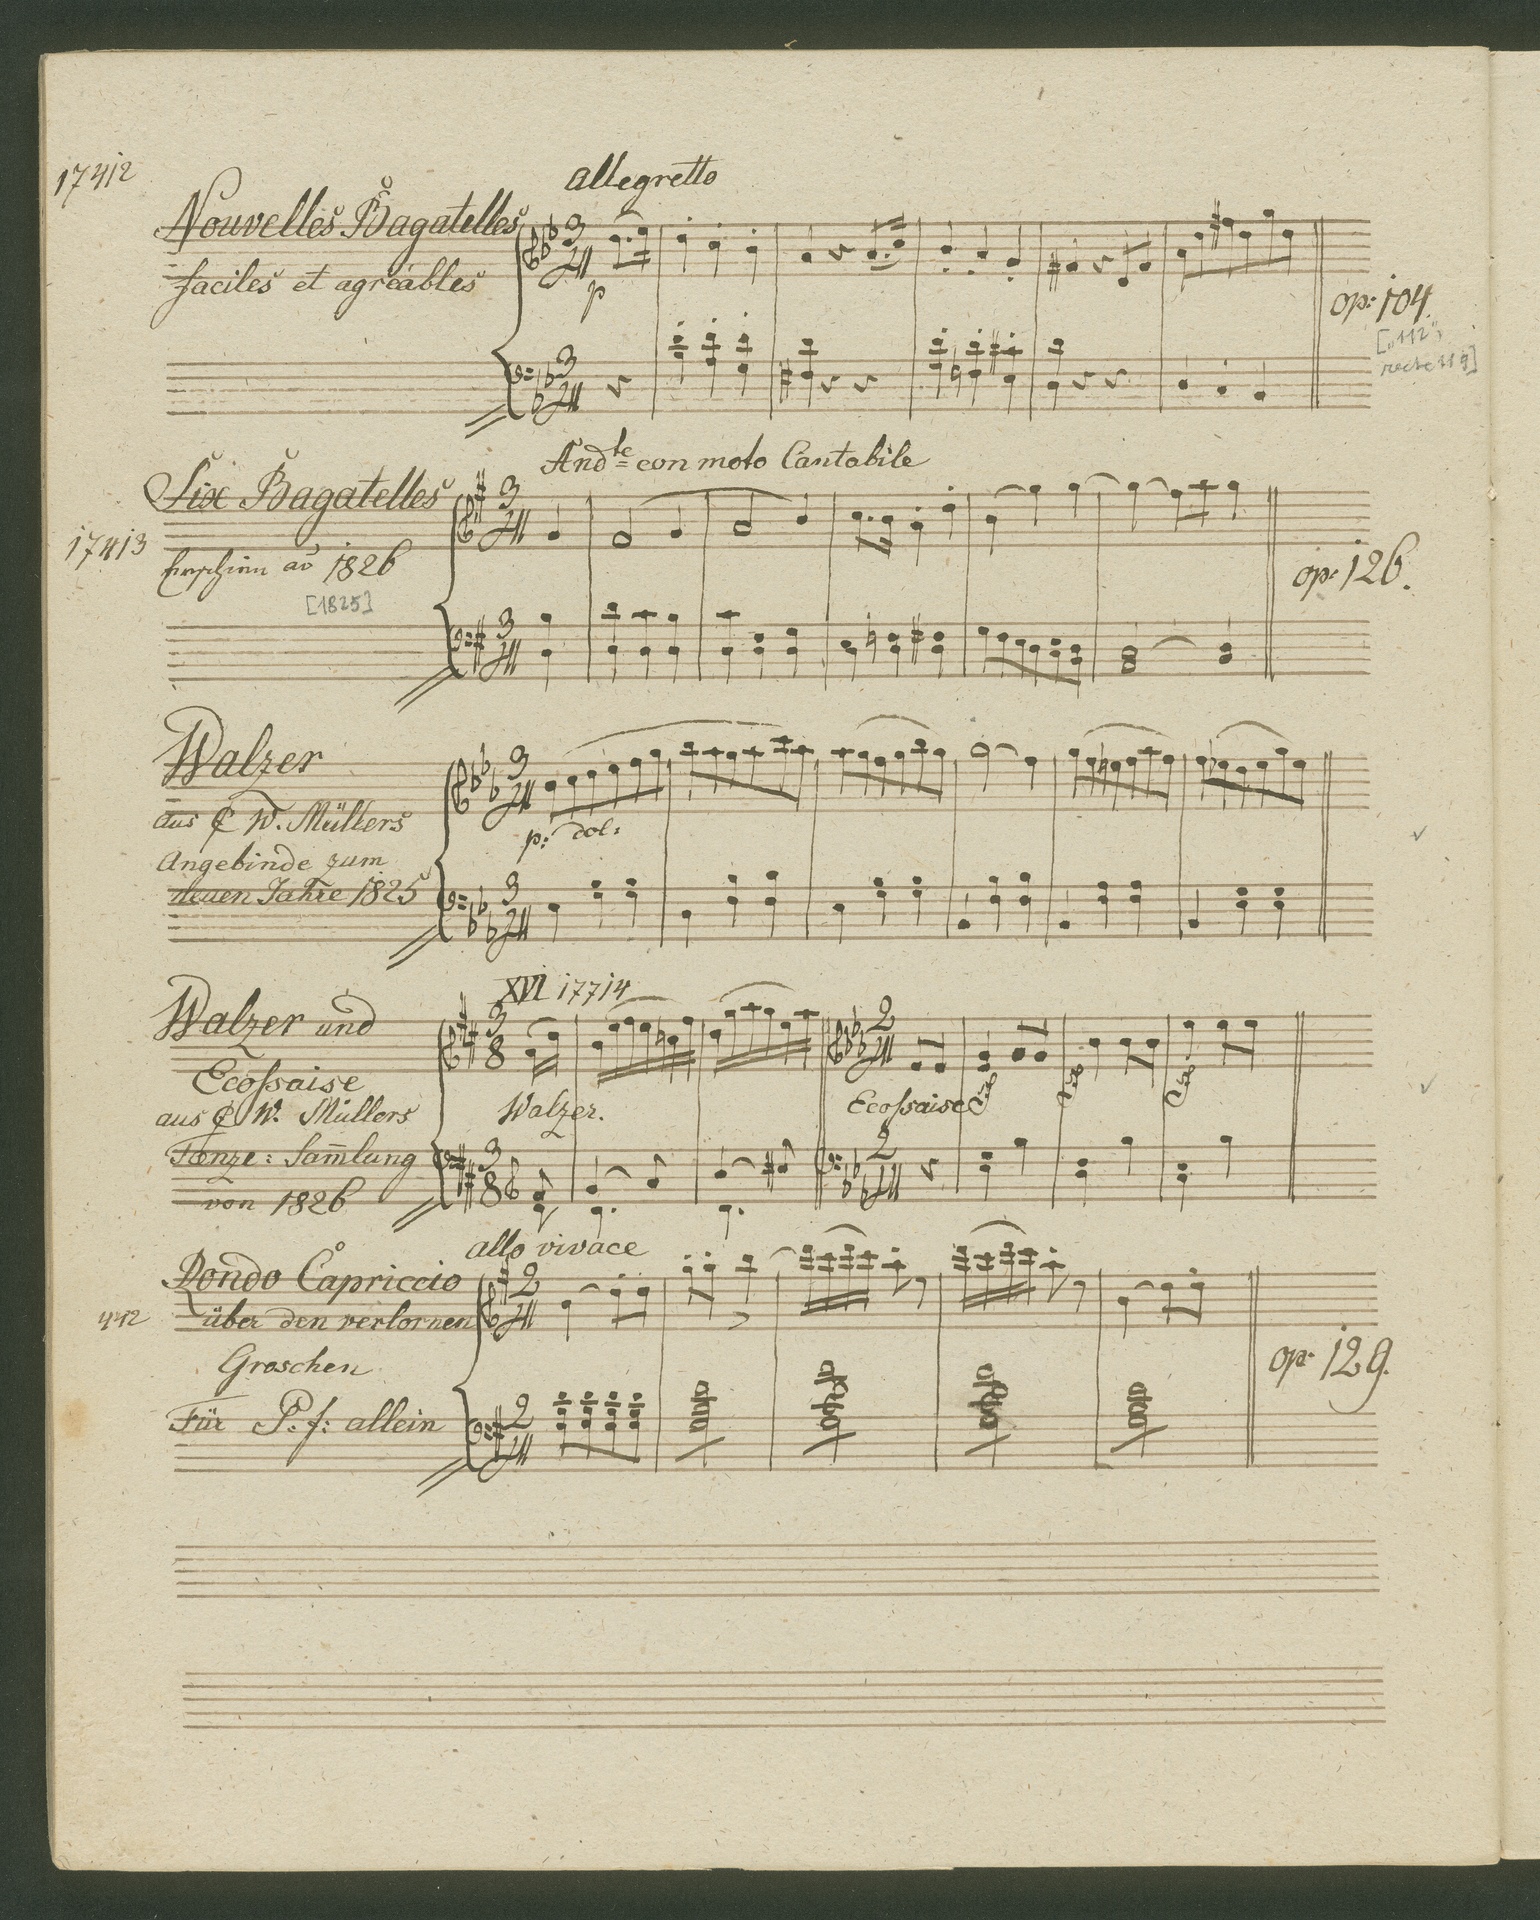 17412
allegretto
Nouvelles Bagatelles
faciles et agréables
p
op: 104.
["112",
recte 119]
Andte con moto Cantabile
Six Bagatelles
17413
1826
[1825]
op: 126.
Walzer
aus C W. Müllers
Angebinde zum
neuen Jahre 1825
p: dol:
XVI 17714
Walzer und
Ecoſsaise
aus C W. Müllers
Tänze: Sam̄lung
von 1826
Walzer.
Ecoſsaise
allo vivace
Rondo Capriccio
442
über den verlornen
Groschen
Für P. f: allein
op: 129.